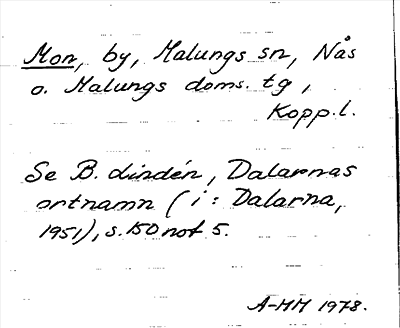 Mon, by, Malungs sn, Nås
o. Malungs doms. tg,
Kopp.l.
Se B. Lindén, Dalarnas
ortnamn (i: Dalarna,
1951), s. 150 not 5.
A-MM 1978.